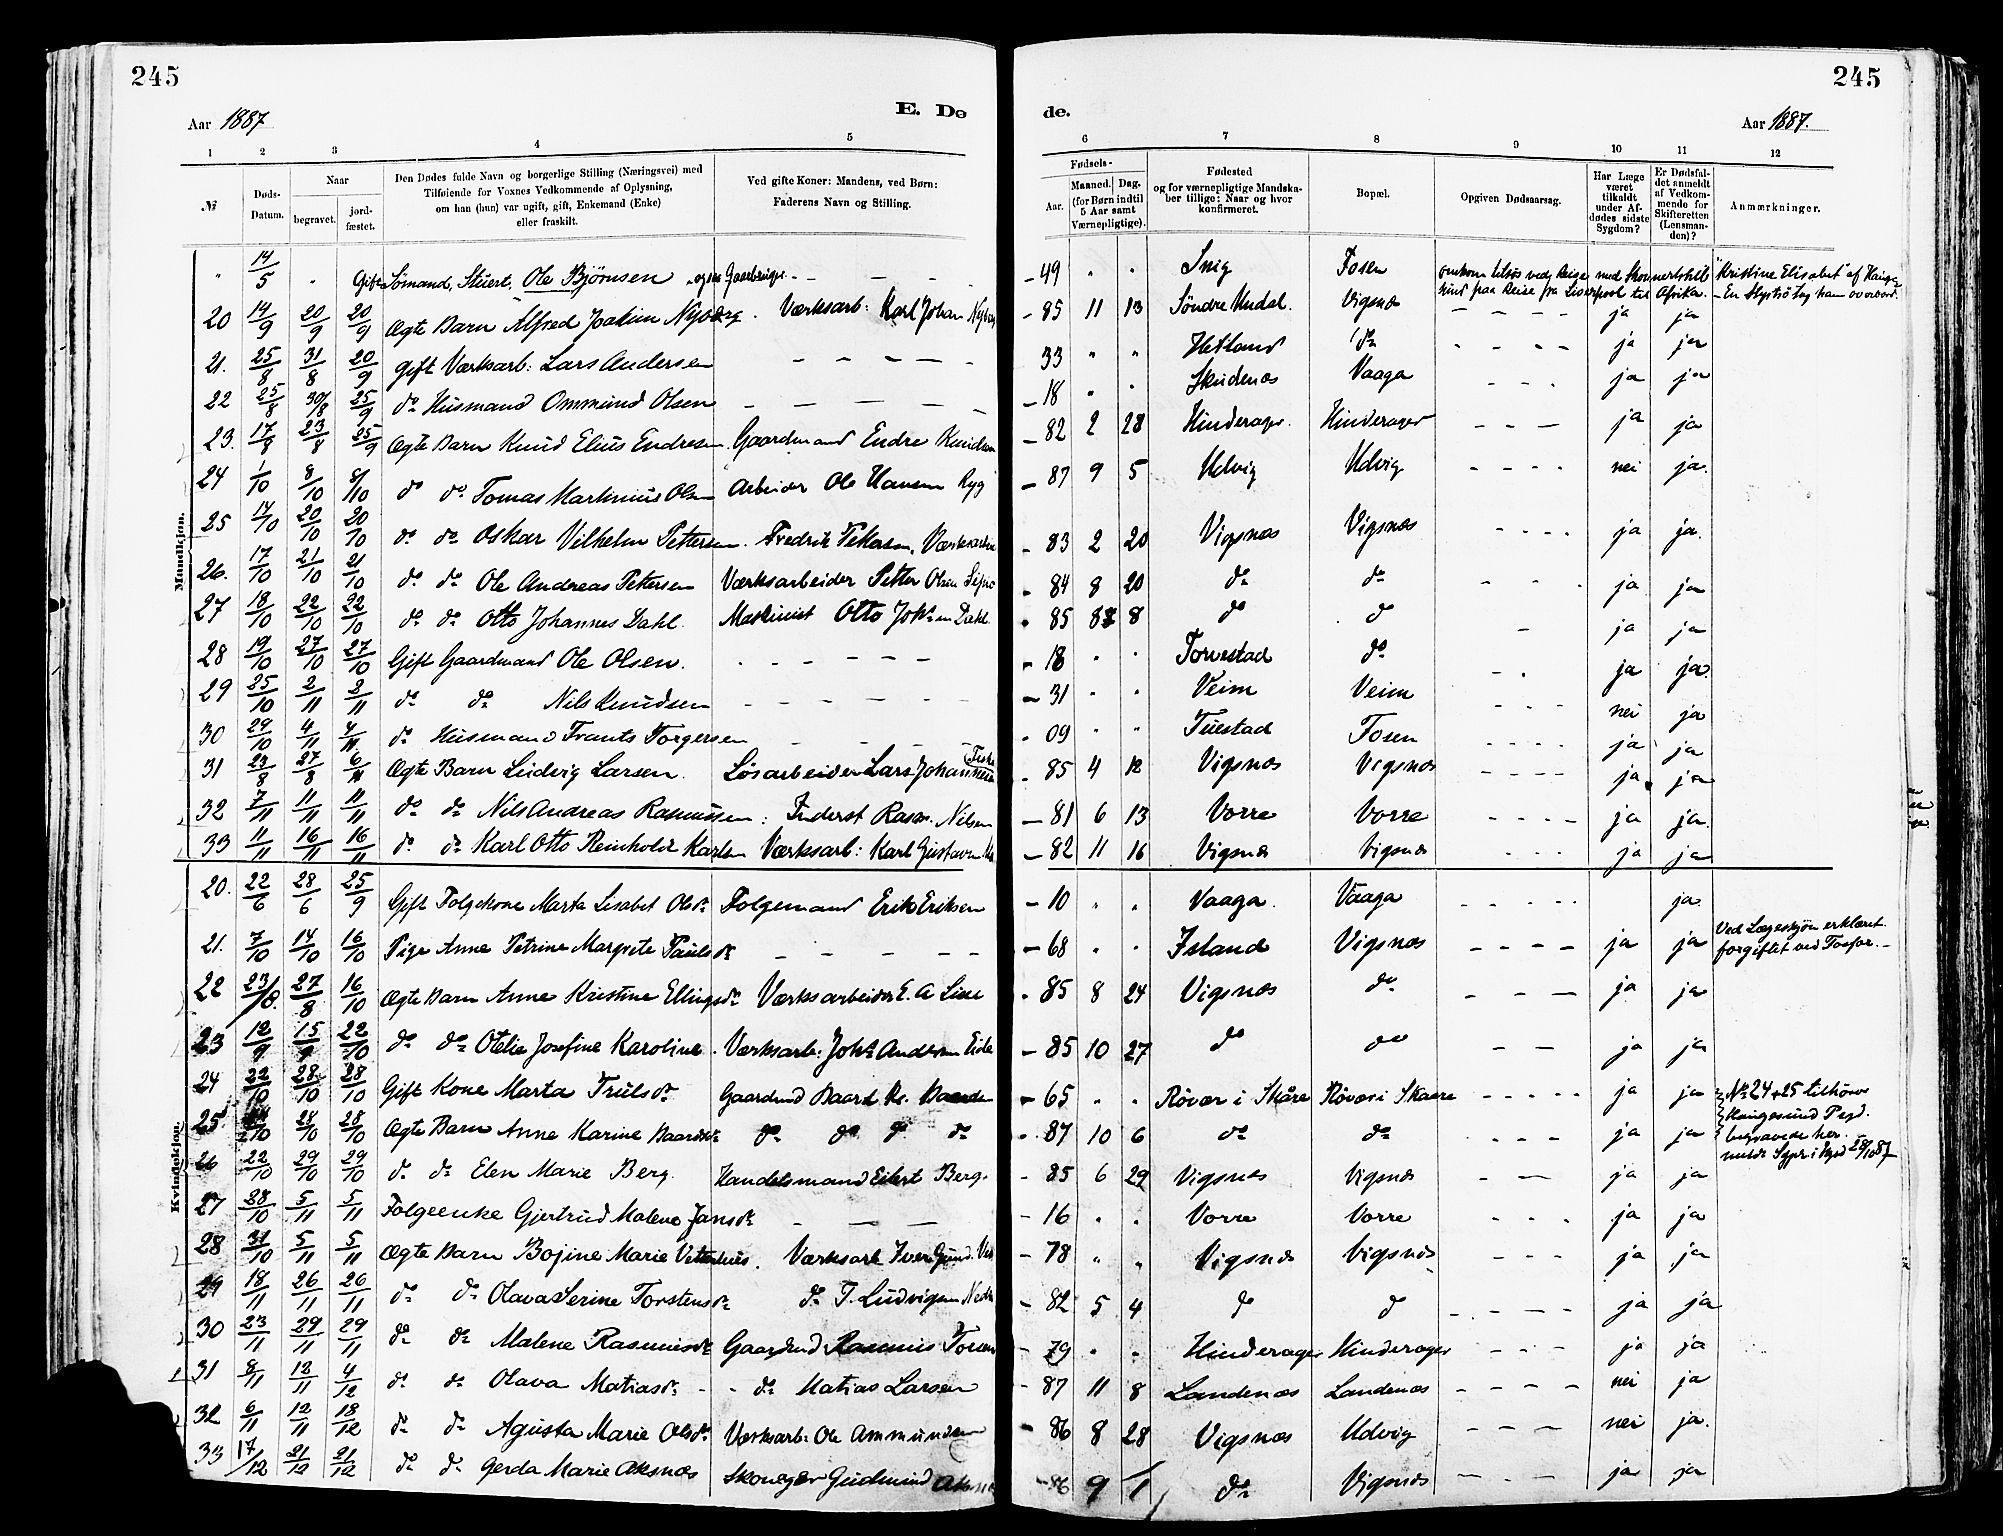 245
245
E. Dø
de.
Aar 1887
Aar 1887.
1 2 3 4 5 6 7 8 9 10 11 12
№
Døds-
Datum.
Naar
begravet.
jord-
fæstet.
Den Dødes fulde Navn og borgerlige Stilling (Næringsvei) med
Tilføiende for Voxnes Vedkommende af Oplysning,
om han (hun) var ugift, gift, Enkemand (Enke)
eller fraskilt.
Ved gifte Koner: Mandens, ved Børn:
Faderens Navn og Stilling.
Fødsels-
Aar.
Maaned. Dag.
(for Børn indtil
5 Aar samt
Værnepligtige).
Fødested
og for værnepligtige Mandska-
ber tillige: Naar og hvor
konfirmeret.
Bopæl.
Opgiven Dødsaarsag.
Har Læge
været
tilkaldt
under Af-
dødes sidste
Sygdom?
Er Dødsfal-
det anmeldt
af Vedkom-
mende for
Skifteretten
(Lensman-
den)?
Anmærkninger.
Mandkjøn.
" 14/5 " Gift Sømand, Stuert, Ole Bjørnsen - 49 " " Fosen omkom tilsøs ved Reise med Skonnertskib "Kristine Elisabet" af Hauge-
sund paa Reise fra Liverpool til Afrika. - En Styrtsø tog ham overbord.
20 14/9 20/9 20/9 Ægte Barn Alfred Joakim Nyberg. Værksarb: Karl Johan Nyberg - 85 11 13 Søndre Undal. Vigsnæs - - - - ja ja
21. 25/8 31/8 20/9 gift Værksarb: Lars Andersen - - - - - 33 " " Hetland do - - - - ja ja
22 25/8 30/8 25/9 do Husmand Ommund Olsen - - - - - 18 " " Skudenæs Vaaga - - - ja ja
23. 17/8 23/8 25/9 Ægte Barn Knud Elius Endresen Gaardmand Endre Knudsen - 82 2 28 Hinderager. Hinderager - - - ja ja
24 1/10 8/10 8/10 do do Tomas Martinius Olsen Arbeider Ole Hansen Ryg - 87 9 5 Udvig Udvig - - - - nei ja.
25 14/10 20/10 20/10 do do Oskar Vilhelm Pettersen. Fredrik Pettersen, Værksarbei - 83 2 20 Vigsnæs Vigsnæs - - - ja ja.
26. 17/10 21/10 21/10 do do Ole Andreas Pettersen Værksarbeider Petter Olsen - 84 8 20 do do - - - ja ja
27 18/10 22/10 22/10 do do Otto Johannes Dahl. Maskinist Otto Joh. Dahl. - 85 8 8 do do - ja ja
28 19/10 27/10 27/10 Gift Gaardmand Ole Olsen. - - - - - - 18 " " Torvestad do - - ja ja.
29 25/10 2/11 2/11 do do Nils Knudsen - - - - - - 31 " " Veim Veim - - - nei ja
30 29/10 4/11 4/11 do Husmand Frants Torgersen - - - - 09 " " Tuestad Fosen - - - - ja ja
31 23/8 27/8 6/11 Ægte Barn Ludvig Larsen. Løsarbeider Lars Johannesen - 85 4 12 Vigsnæs Vigsnæs - - - - ja ja
32 7/11 11/11 11/11 do do Nils Andreas Rasmussen: Inderst Rasm. Nilsen - 81 6 13 Vorre Vorre - - - - ja ja.
33 11/11 16/11 16/11 do do Karl Otto Reinholdt Karlsen Værksarb: Karl Gustavsen - 82 11 16 Vigsnæs Vigsnæs - - - ja ja
Kvindekjøn.
20. 22/6 28/6 25/9 Gift Folgekone Marta Lisabet Olsdr Folgemand Erik Eriksen - 10 " " Vaaga. Vaaga - - - - - ja.
21. 7/10 14/10 16/10 Pige Anne Petrine Margrete Paulsdr - - - - - - 68 " " Island Vigsnæs - - - - ja ja Ved Lægeskjøn erklæret
forgiftet ved Fosfor. -
22 23/8. 27/8 16/10 Ægte Barn Anne Kristine Ellingsdr Værksarbeider E. A - 85 8 24 Vigsnæs do - - - ja ja
23 12/9 15/9 22/10 do do Otelie Josefine Karoline. Værksarb: Johs Andersen Eide - 85 10 27 do do - - ja ja
24 22/10 28/10 28/10 Gift Kone Marta Trulsdr Gaardmd Baard - 65 " " Røvær i Skåre Røvær i Skaare - - - - - ja ja No 24 + 25 tilhører
Haugesund Pgd.
begravede her
25. 28/10 28/10 Ægte Barn Anne Karine Baardsdr do do do do - 87 10 6 do do - - - - ja ja
26 22/10 29/10 29/10 do do Elen Marie Berg. Handelsmand Eilert Berg. - 85 6 29 Vigsnæs Vigsnæs - - ja ja
27 28/10 5/11 5/11 Folgeenke Gjertrud Malene Jansdr - - - - 16 " " Vorre Vorre - - - ja ja
28 31/10 5/11 5/11 Ægte Barn Bojine Marie Vetterhus. Værksarb Iver Gund. - 78 " " Vigsnæs Vigsnæs - - - ja ja
29 18/11 26/11 26/11 do do Olava Serine Torstensdr do T. Ludvigsen - 82 5 4 do do - - - - ja ja
30 23/11 29/11 29/11 do do Malene Rasmusdr Gaardmd Rasmus - 79 " " Hinderager Hinderager - - - ja ja
31 8/11 12/11 4/12 do do Olava Matiasdr - - do Matias Larsen - 87 11 8 Landenæs Landenæs - - - - nei ja
32 6/11 12/11 18/12 do do Agusta Marie Olsdr Værksarb: Ole Ammundsen - 86 8 28 Vigsnæs Udvig - - - - nei ja.
33 17/12 21/12 21/12 do do Gerda Marie Aksnæs Skomager Gudmund Aksnæs - 86 9 1 do Vigsnæs - - - ja ja